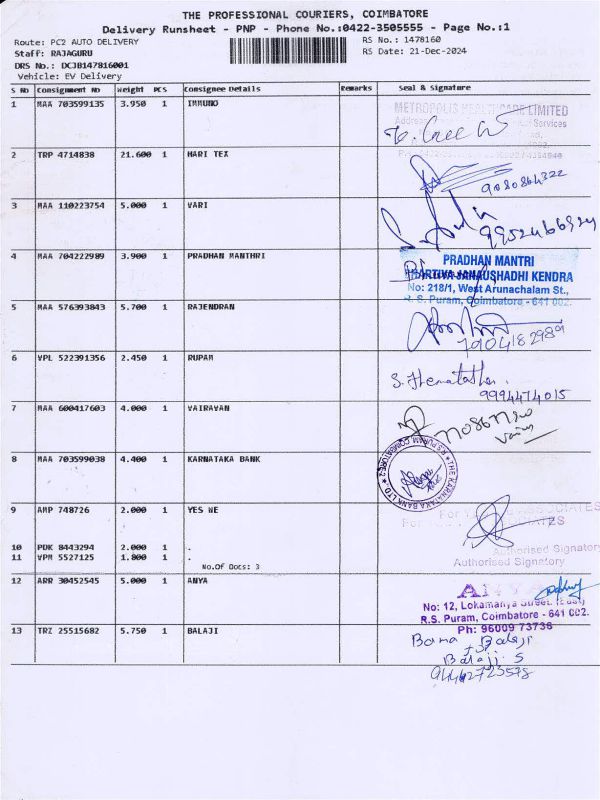 THE PROFESSIONAL COURIERS, COIMBATORE
Delivery Runsheet - PNP - Phone No.:0422-3505555 - Page No.:1
Route: PC2 AUTO DELIVERY
RS No.: 1478160
Staff: RAJAGURU
RS Date: 21-Dec-2024
DRS No.: DCJB147816001
Vehicle: EV Delivery
S No Consignment No Weight PCS Consignee Details Remarks Seal & Signature
1 MAA 703599135 3.950 1 IMMUNO
METROPOLIS HEALTHCARE LIMITED
Services
2 TRP 4714838 21.600 1 HARI TEX
9080864322
3 MAA 110223754 5.000 1 VARI
9952466924
4 MAA 704222989 3.900 1 PRADHAN MANTHRI
PRADHAN MANTRI
BHARTIYA JANAUSHADHI KENDRA
No: 218/1, West Arunachalam St.,
R.S. Puram, Coimbatore - 641 002.
5 MAA 576393843 5.700 1 RAJENDRAN
7904182989
6 VPL 522391356 2.450 1 RUPAM
9994474015
7 MAA 600417603 4.000 1 VAIRAVAN
8 MAA 703599038 4.400 1 KARNATAKA BANK
THE KARNATAKA BANK LTD. R.S PURAM COIMBATORE-2
9 AMP 748726 2.000 1 YES WE
ASSOCIATES
10 PDK 8443294 2.000 1 .
Authorised Signatory
11 VPM 5527125 1.800 1 .
Authorised Signatory
No.Of Docs: 3
12 ARR 30452545 5.000 1 ANYA
No: 12, Lokamanya Street. (East)
R.S. Puram, Coimbatore - 641 002.
Ph: 96009 73736
13 TRZ 25515682 5.750 1 BALAJI
Balaji
Balaji S